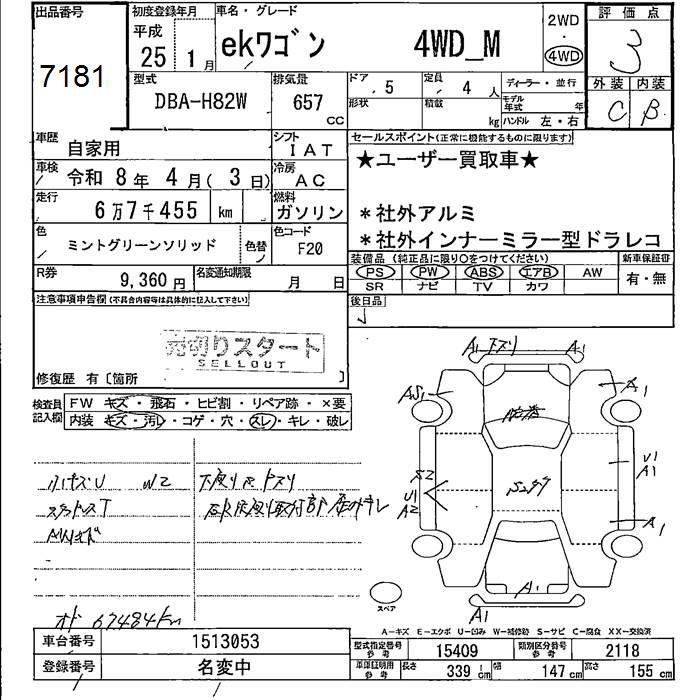 出品番号 初度登録年月 車名・グレード 評価点
7181 平成 25年 1月 ekワゴン 4WD_M 2WD 4WD 3
型式 排気量 ドア 5 定員 4人 ディーラー・並行 外装 内装
DBA-H82W 657 CC 形状 積載 kg モデル年式 年 ハンドル 左・右 C B
車歴 自家用 シフト IAT セールスポイント(正常に機能するものに限ります)
車検 令和 8年 4月( 3日) 冷房 AC ★ユーザー買取車★
走行 6万7千455 km 燃料 ガソリン *社外アルミ
色 ミントグリーンソリッド 色替 色コード F20 *社外インナーミラー型ドラレコ
装備品(純正品に限り○をつけてください) 新車保証書
R券 9,360円 名変通知期限 月 日 PS PW ABS エアB AW 有・無
SR ナビ TV カワ
注意事項申告欄(不具合内容等は具体的に記入して下さい) 後日品
売切りスタート
SELLOUT
修復歴 有〔箇所 〕
検査員記入欄 FW キズ・飛石・ヒビ割・リペア跡・×要
内装 キズ・汚レ・コゲ・穴・スレ・キレ・破レ
A1 下スリ A1
AS1 A1
小キズU W2 下廻りサビ
S2 U1 A2 U1 A1
スタッドレスT
A1
オド 67484km
A1
スペア A1
A-キズ E-エクボ U-凹み W-補修跡 S-サビ C-腐食 XX-交換済
車台番号 1513053 型式指定番号 参考 15409 類別区分番号 参考 2118
登録番号 名変中 車庫証明用 参考 長さ 339 cm 幅 147 cm 高さ 155 cm